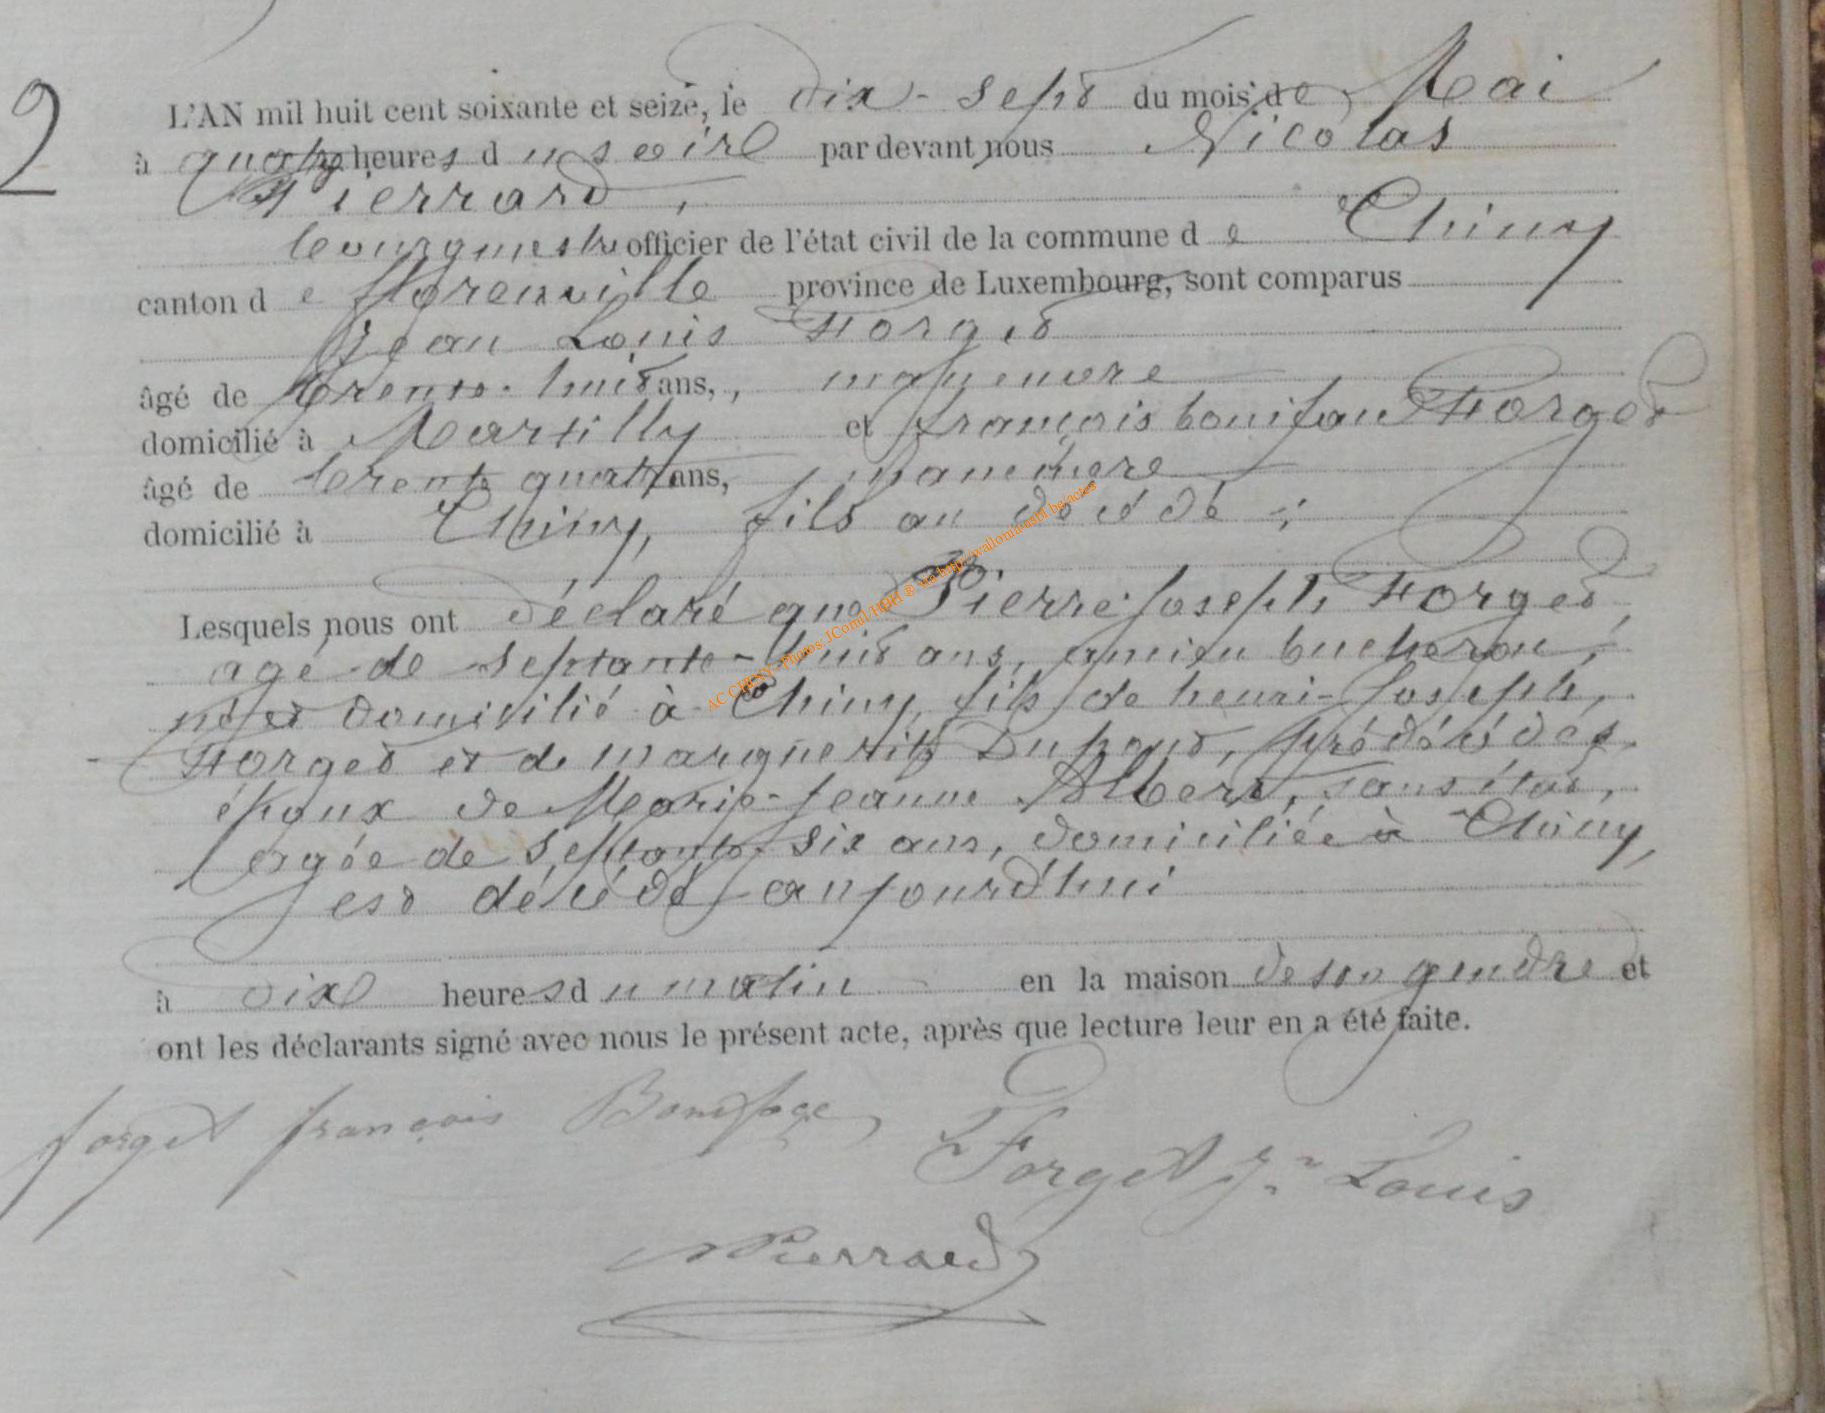 2
L'AN mil huit cent soixante et seize, le dix-sept du mois de Mai
à quatre heures du soir par devant nous Nicolas
Pierrard,
bourgmestre officier de l'état civil de la commune de Chiny
canton de florenville province de Luxembourg, sont comparus
Jean Louis Forget
âgé de trente-huit ans,, manœuvre
domicilié à Martilly et françois boniface Forget
âgé de trente quatre ans, manœuvre
domicilié à Chiny, fils au décédé ;
Lesquels nous ont déclaré que Pierre-Joseph Forget,
agé de septante-huit ans, ancien bucheron,
né et domicilié à Chiny, fils de henri-Joseph
Forget et de marguerite Dupont, prédécédés,
époux de Marie-Jeanne Albert, sans état,
agée de septante-six ans, domiciliée à Chiny,
est décédé aujourd'hui
à dix heures du matin en la maison de son gendre et
ont les déclarants signé avec nous le présent acte, après que lecture leur en a été faite.
forget françois Boniface Forget Jn Louis
NPierrard
AC CHINY - Photos JComil/HPH ® via http://wallonia-asbl.be/actes